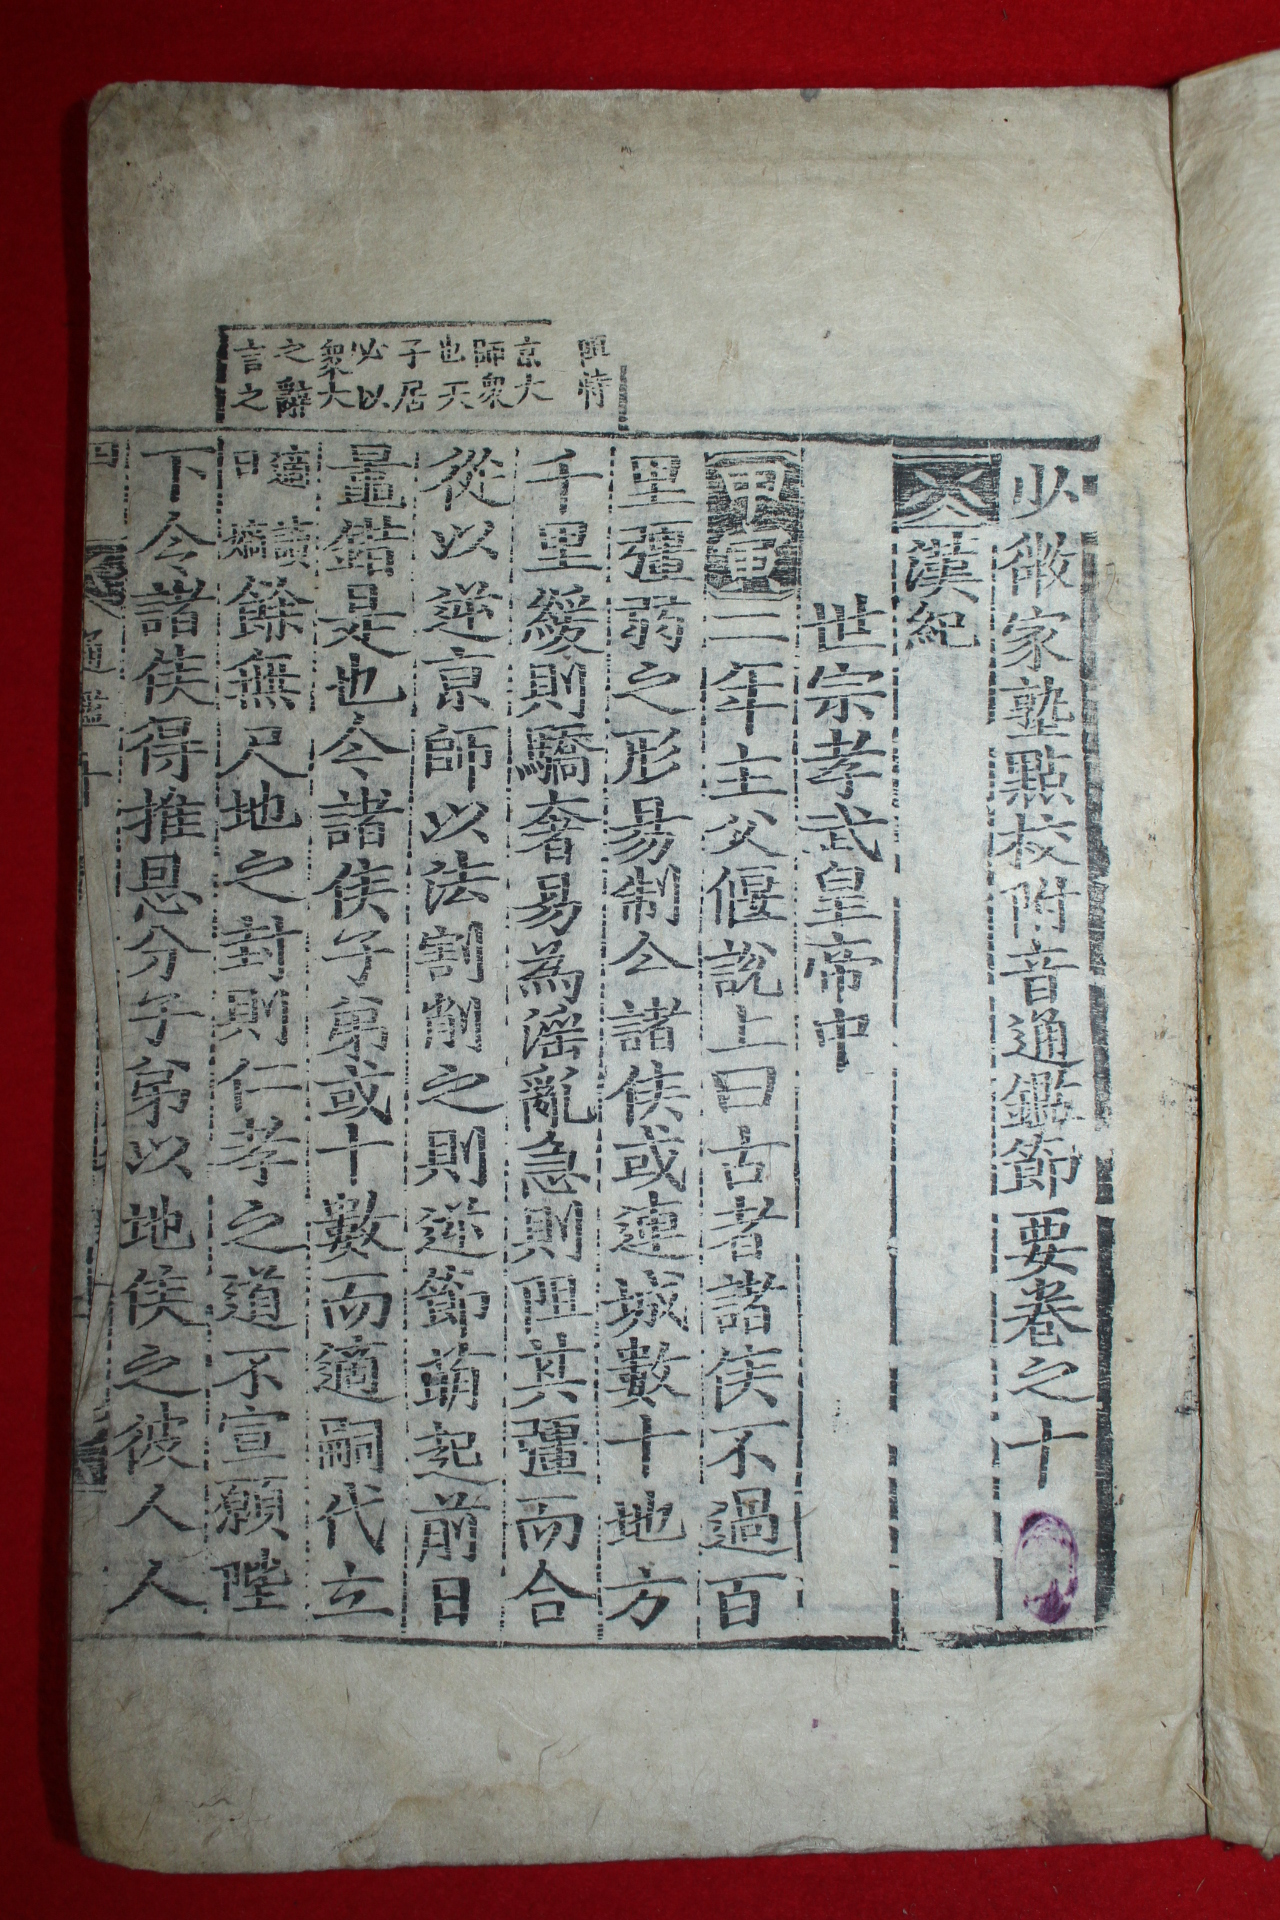 阻恃
京大
師衆
也天
子居
必以
衆大
之辭
言之
少微家塾點校附音通鑑節要卷之十
漢紀
世宗孝武皇帝中
甲寅二年主父偃說上曰古者諸侯不過百
里彊弱之形易制今諸侯或連城數十地方
千里緩則驕奢易為淫亂急則阻其彊而合
從以逆京師以法割削之則逆節萌起前日
鼂錯是也今諸侯子弟或十數而適嗣代立
適讀曰嫡餘無尺地之封則仁孝之道不宣願陛
下令諸侯得推恩分子弟以地侯之彼人人
通鑑十